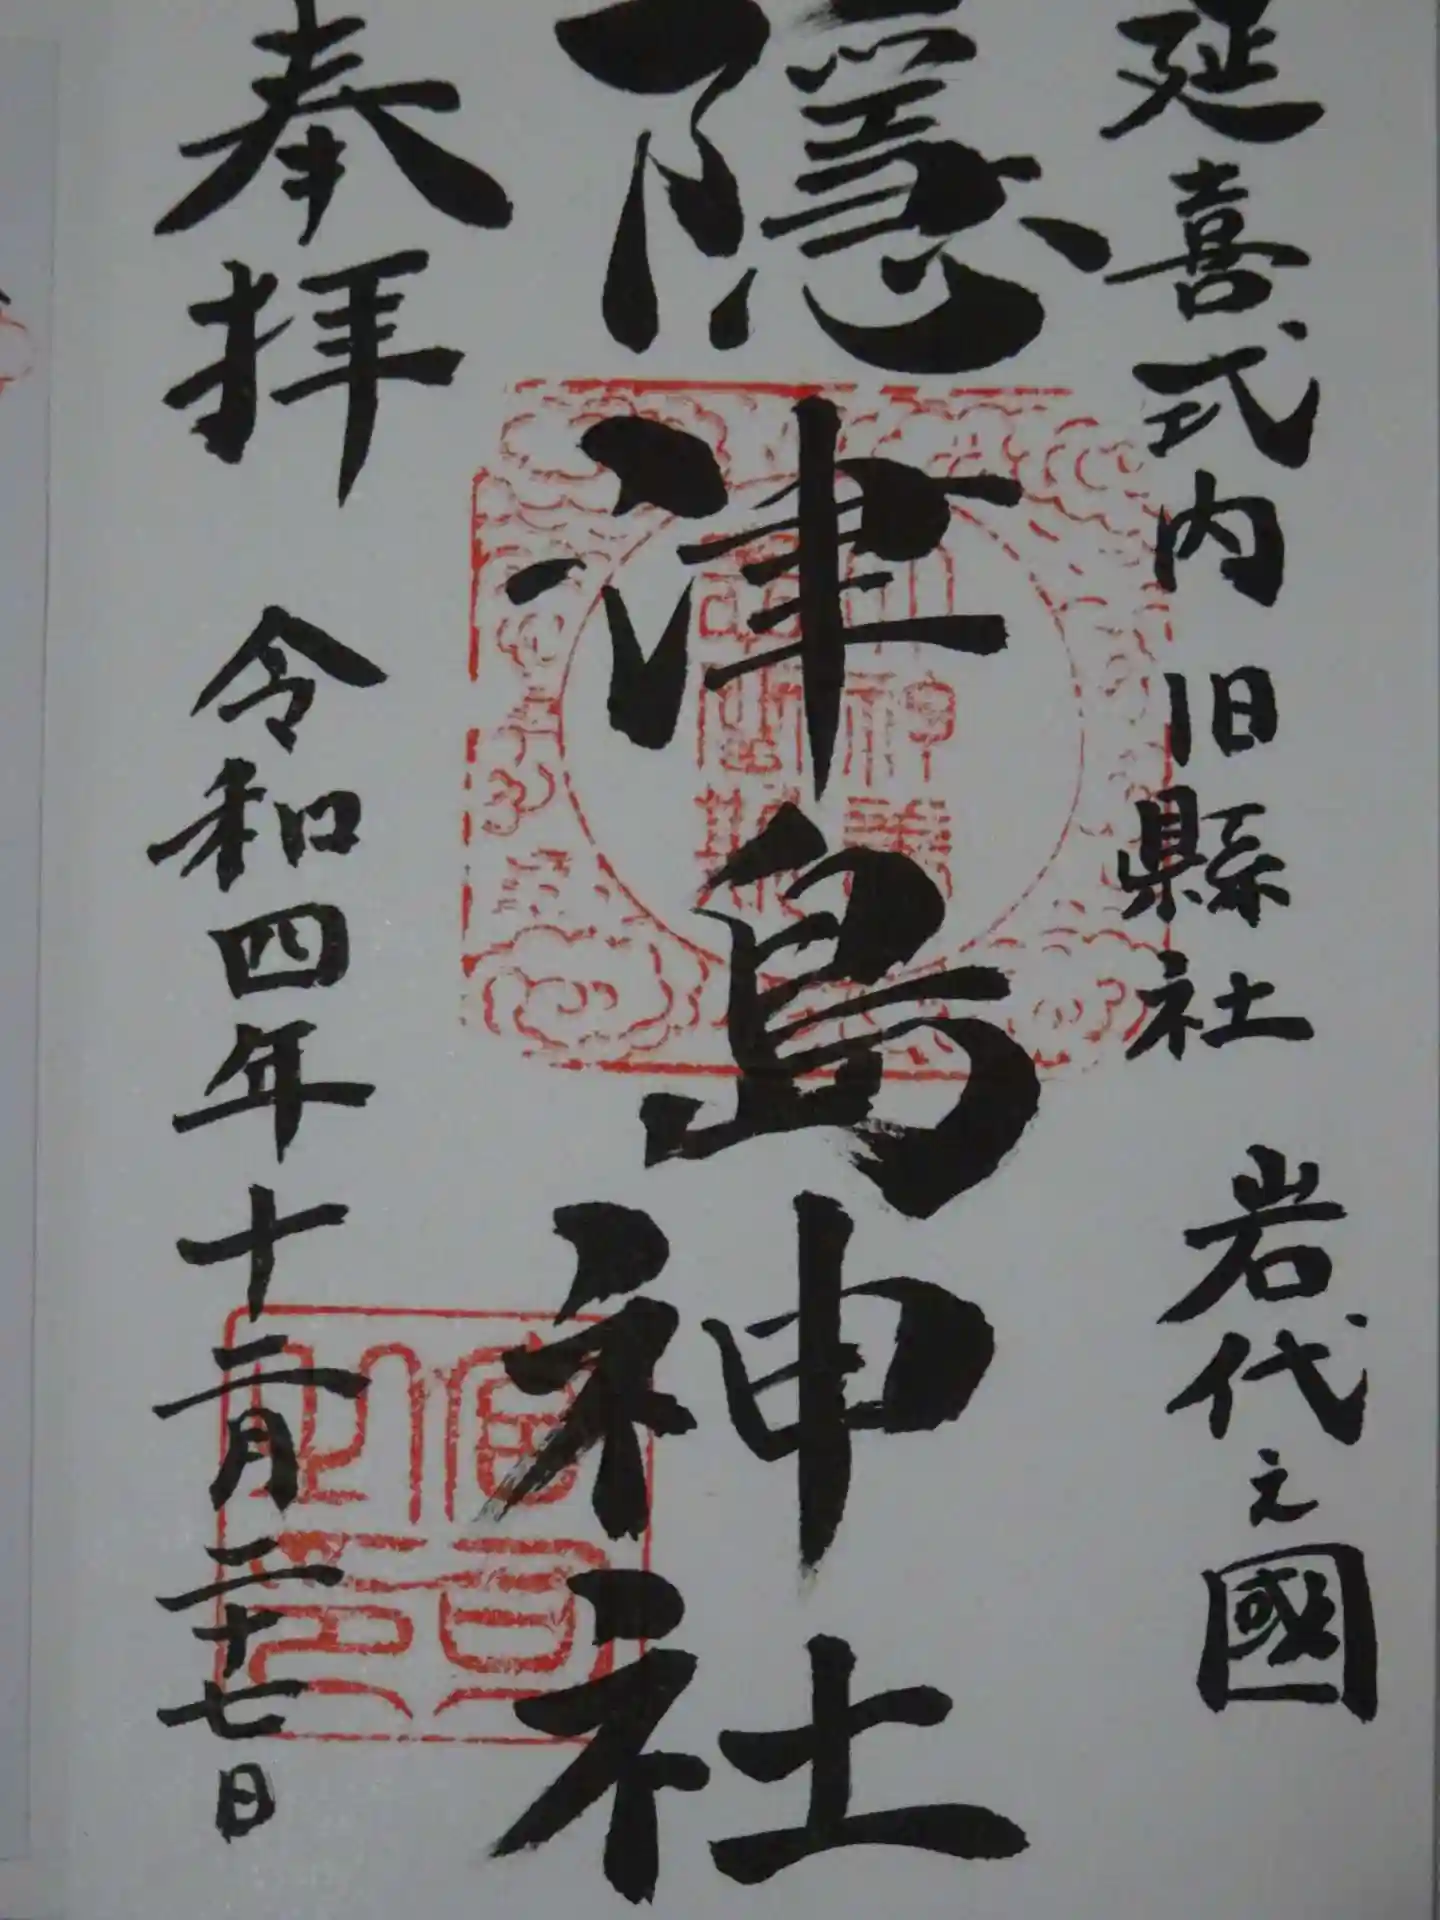 延喜式内 旧縣社 岩代之國
隠津島神社
奉拝 令和四年十二月二十七日